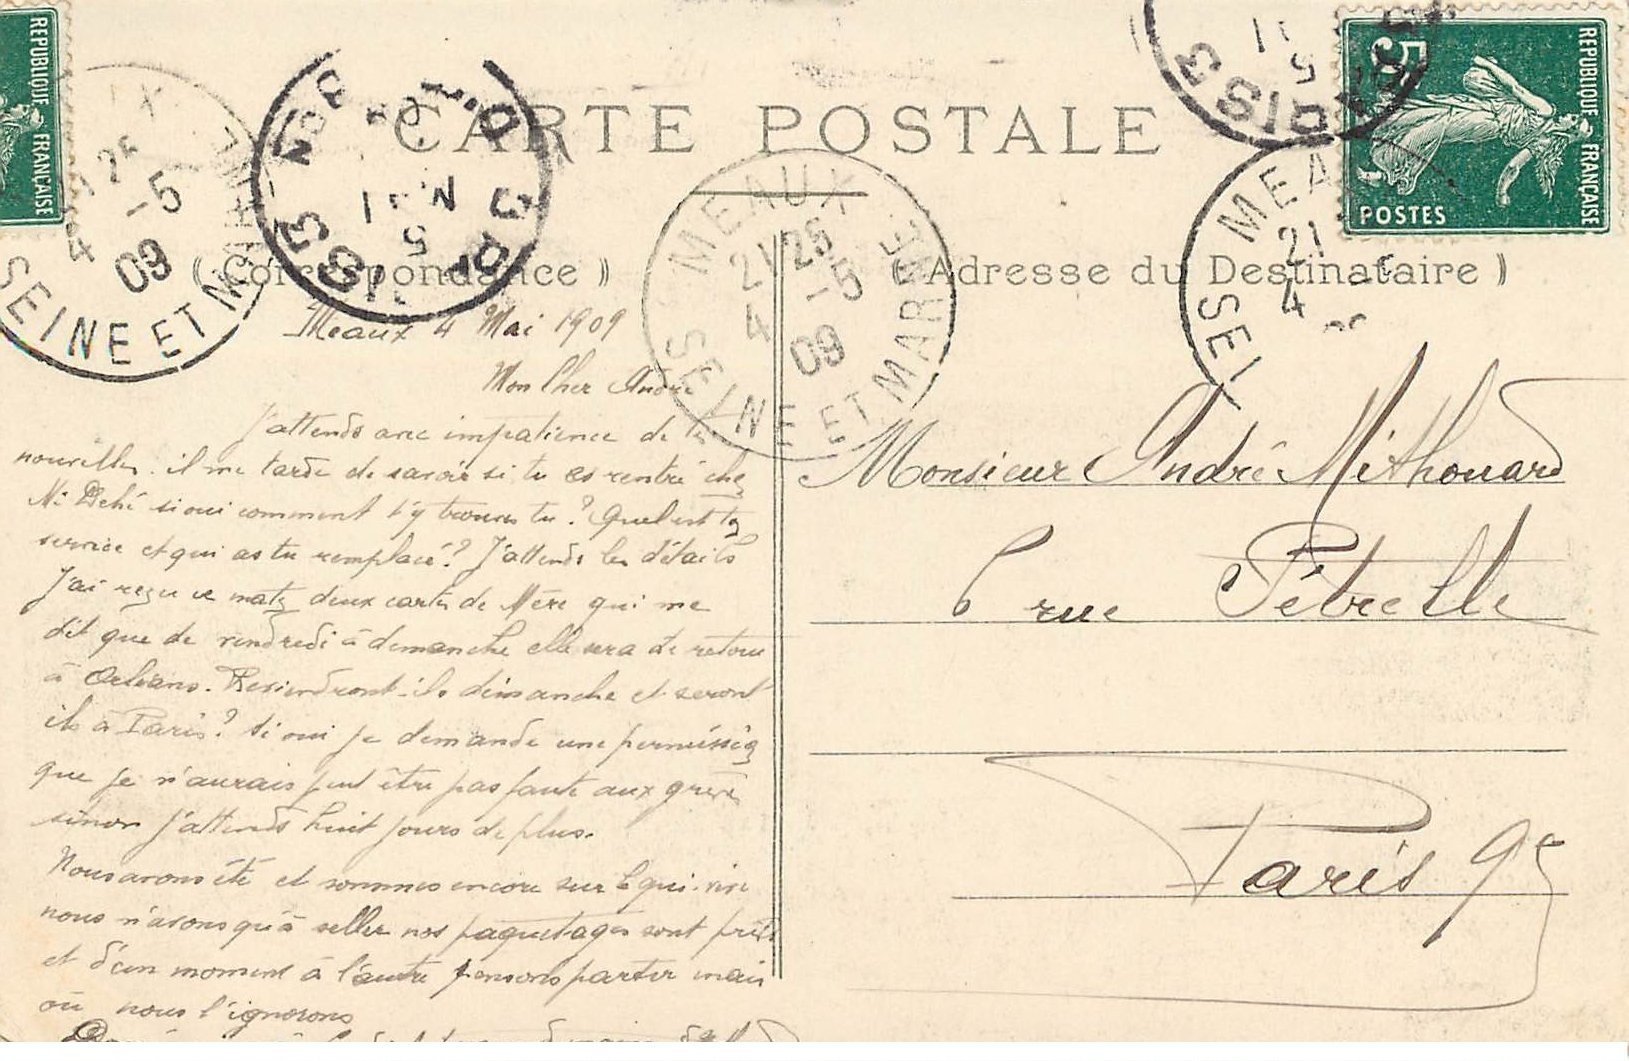 CARTE POSTALE
( Correspondance )
( Adresse du Destinataire )
REPUBLIQUE FRANÇAISE
REPUBLIQUE FRANÇAISE
5c
POSTES
21 25
4 - 5
09
SEINE ET MARNE
MEAUX
21 25
4 - 5
09
SEINE ET MARNE
MEA
21
4
SEI
Meaux 4 Mai 1909
Mon Cher André
J'attends avec impatience de tes
nouvelles. il me tarde de savoir si tu es rentré chez
si oui comment t'y trouves tu ? Quel est ton
service et qui as tu remplacé ? J'attends les détails
J'ai reçu ce matin deux cartes de Mère qui me
dit que de vendredi à demanche elle sera de retour
à Orléans. Reviendront-ils dimanche et seront
ils à Paris ? Si oui je demande une permission
que je n'aurais peut être pas faute aux grèves
sinon j'attends huit jours de plus.
Nous avons été et sommes encore sur le qui-vive
nous n'avons qu'à seller nos paquetages sont prêts
et d'un moment à l'autre pensons partir mais
où nous l'ignorons
Monsieur André Mithouard
6 rue Pétrelle
Paris 9e